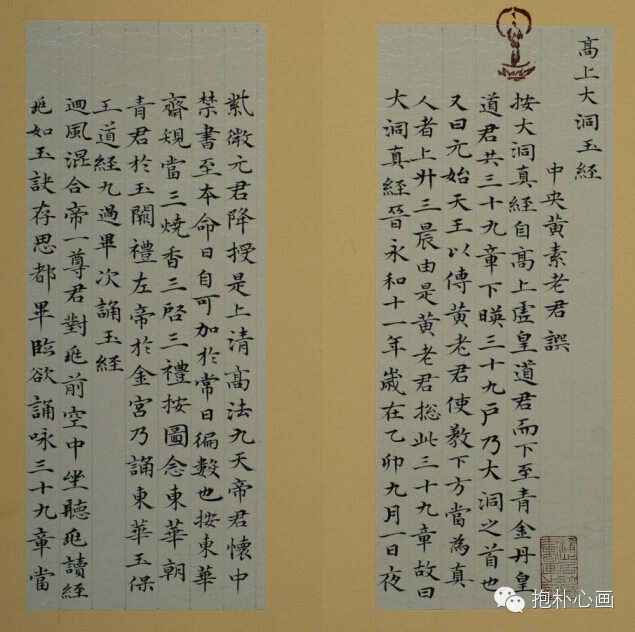 高上大洞玉經
中央黃素老君譔
按大洞真經自高上虛皇道君而下至青金丹皇
道君共三十九章下暎三十九户乃大洞之首也
又曰元始天王以傳黃老君使教下方當為真
人者上升三晨由是黃老君総此三十九章故曰
大洞真經晉永和十一年歲在乙卯九月一日夜
紫微元君降授是上清高法九天帝君懷中
禁書至本命日自可加於常日徧數也按東華
齋䂓當三燒香三啓三禮按圖念東華朝
青君於玉闕禮左帝於金宮乃誦東華玉保
王道經九過畢次誦玉經
迴風混合帝一尊君對兆前空中坐聽兆讀經
兆如玉訣存思都畢臨欲誦咏三十九章當
抱朴心画